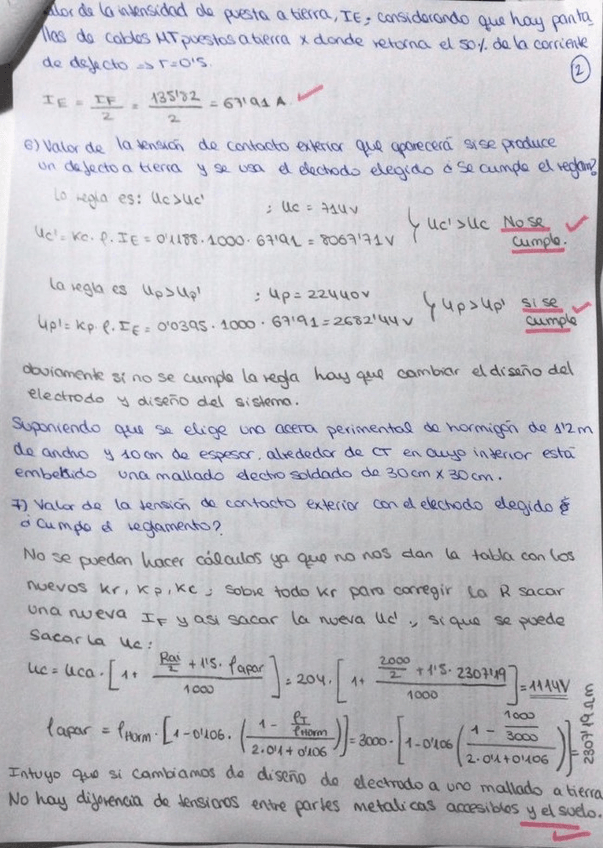 alor de la intensidad de puesta a tierra, IE, considerando que hay panta
llas de cables MT puestos a tierra x donde retorna el 50% de la corriente
de defecto => r=0'5.
2
IE = IF/2 = 135'82/2 = 67'91 A.
6) Valor de la tensión de contacto exterior que aparecerá si se produce
un defecto a tierra y se usa el electrodo elegido ¿Se cumple el reglam?
La regla es: Uc>Uc' ; Uc = 714v
Uc' = Kc. ρ. IE = 0'1188. 1000. 67'91 = 8067'71 V
Uc' > Uc No se cumple.
La regla es Up>Up' ; Up = 22440v
Up' = Kp. ρ. IE = 0'0395. 1000. 67'91 = 2682'44 v
Up > Up' sí se cumple
obviamente si no se cumple la regla hay que cambiar el diseño del
electrodo y diseño del sistema.
Suponiendo que se elige una acera perimetal de hormigón de 1'2 m
de ancho y 10 cm de espesor, alrededor de CT en cuyo interior está
embebido una mallado electrosoldado de 30 cm x 30 cm.
7) Valor de la tensión de contacto exterior con el electrodo elegido
¿Cumple el reglamento?
No se pueden hacer cálculos ya que no nos dan la tabla con los
nuevos Kr, Kp, Kc, sobre todo Kr para corregir la R sacar
una nueva IF y así sacar la nueva Uc', si que se puede
sacar la Uc:
Uc = Uca. [1 + (Rai/2 + 1'5. ρapar)/1000] = 204. [1 + (2000/2 + 1'5. 2307'19)/1000] = 1114V
ρapar = ρHorm. [1 - 0'106. ((1 - ρT/ρHorm)/(2.0'1 + 0'106))] = 3000. [1 - 0'106 ((1 - 1000/3000)/(2.0'1 + 0'106))] = 2307'19 Ω.m
Intuyo que si cambiamos de diseño de electrodo a uno mallado a tierra
No hay diferencia de tensiones entre partes metalicas accesibles y el suelo.